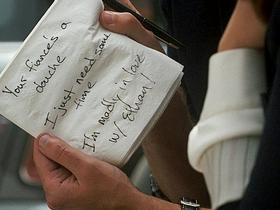 Your fiance's a
douche
I just need some
time
I'm madly in love
w/ Ethan!